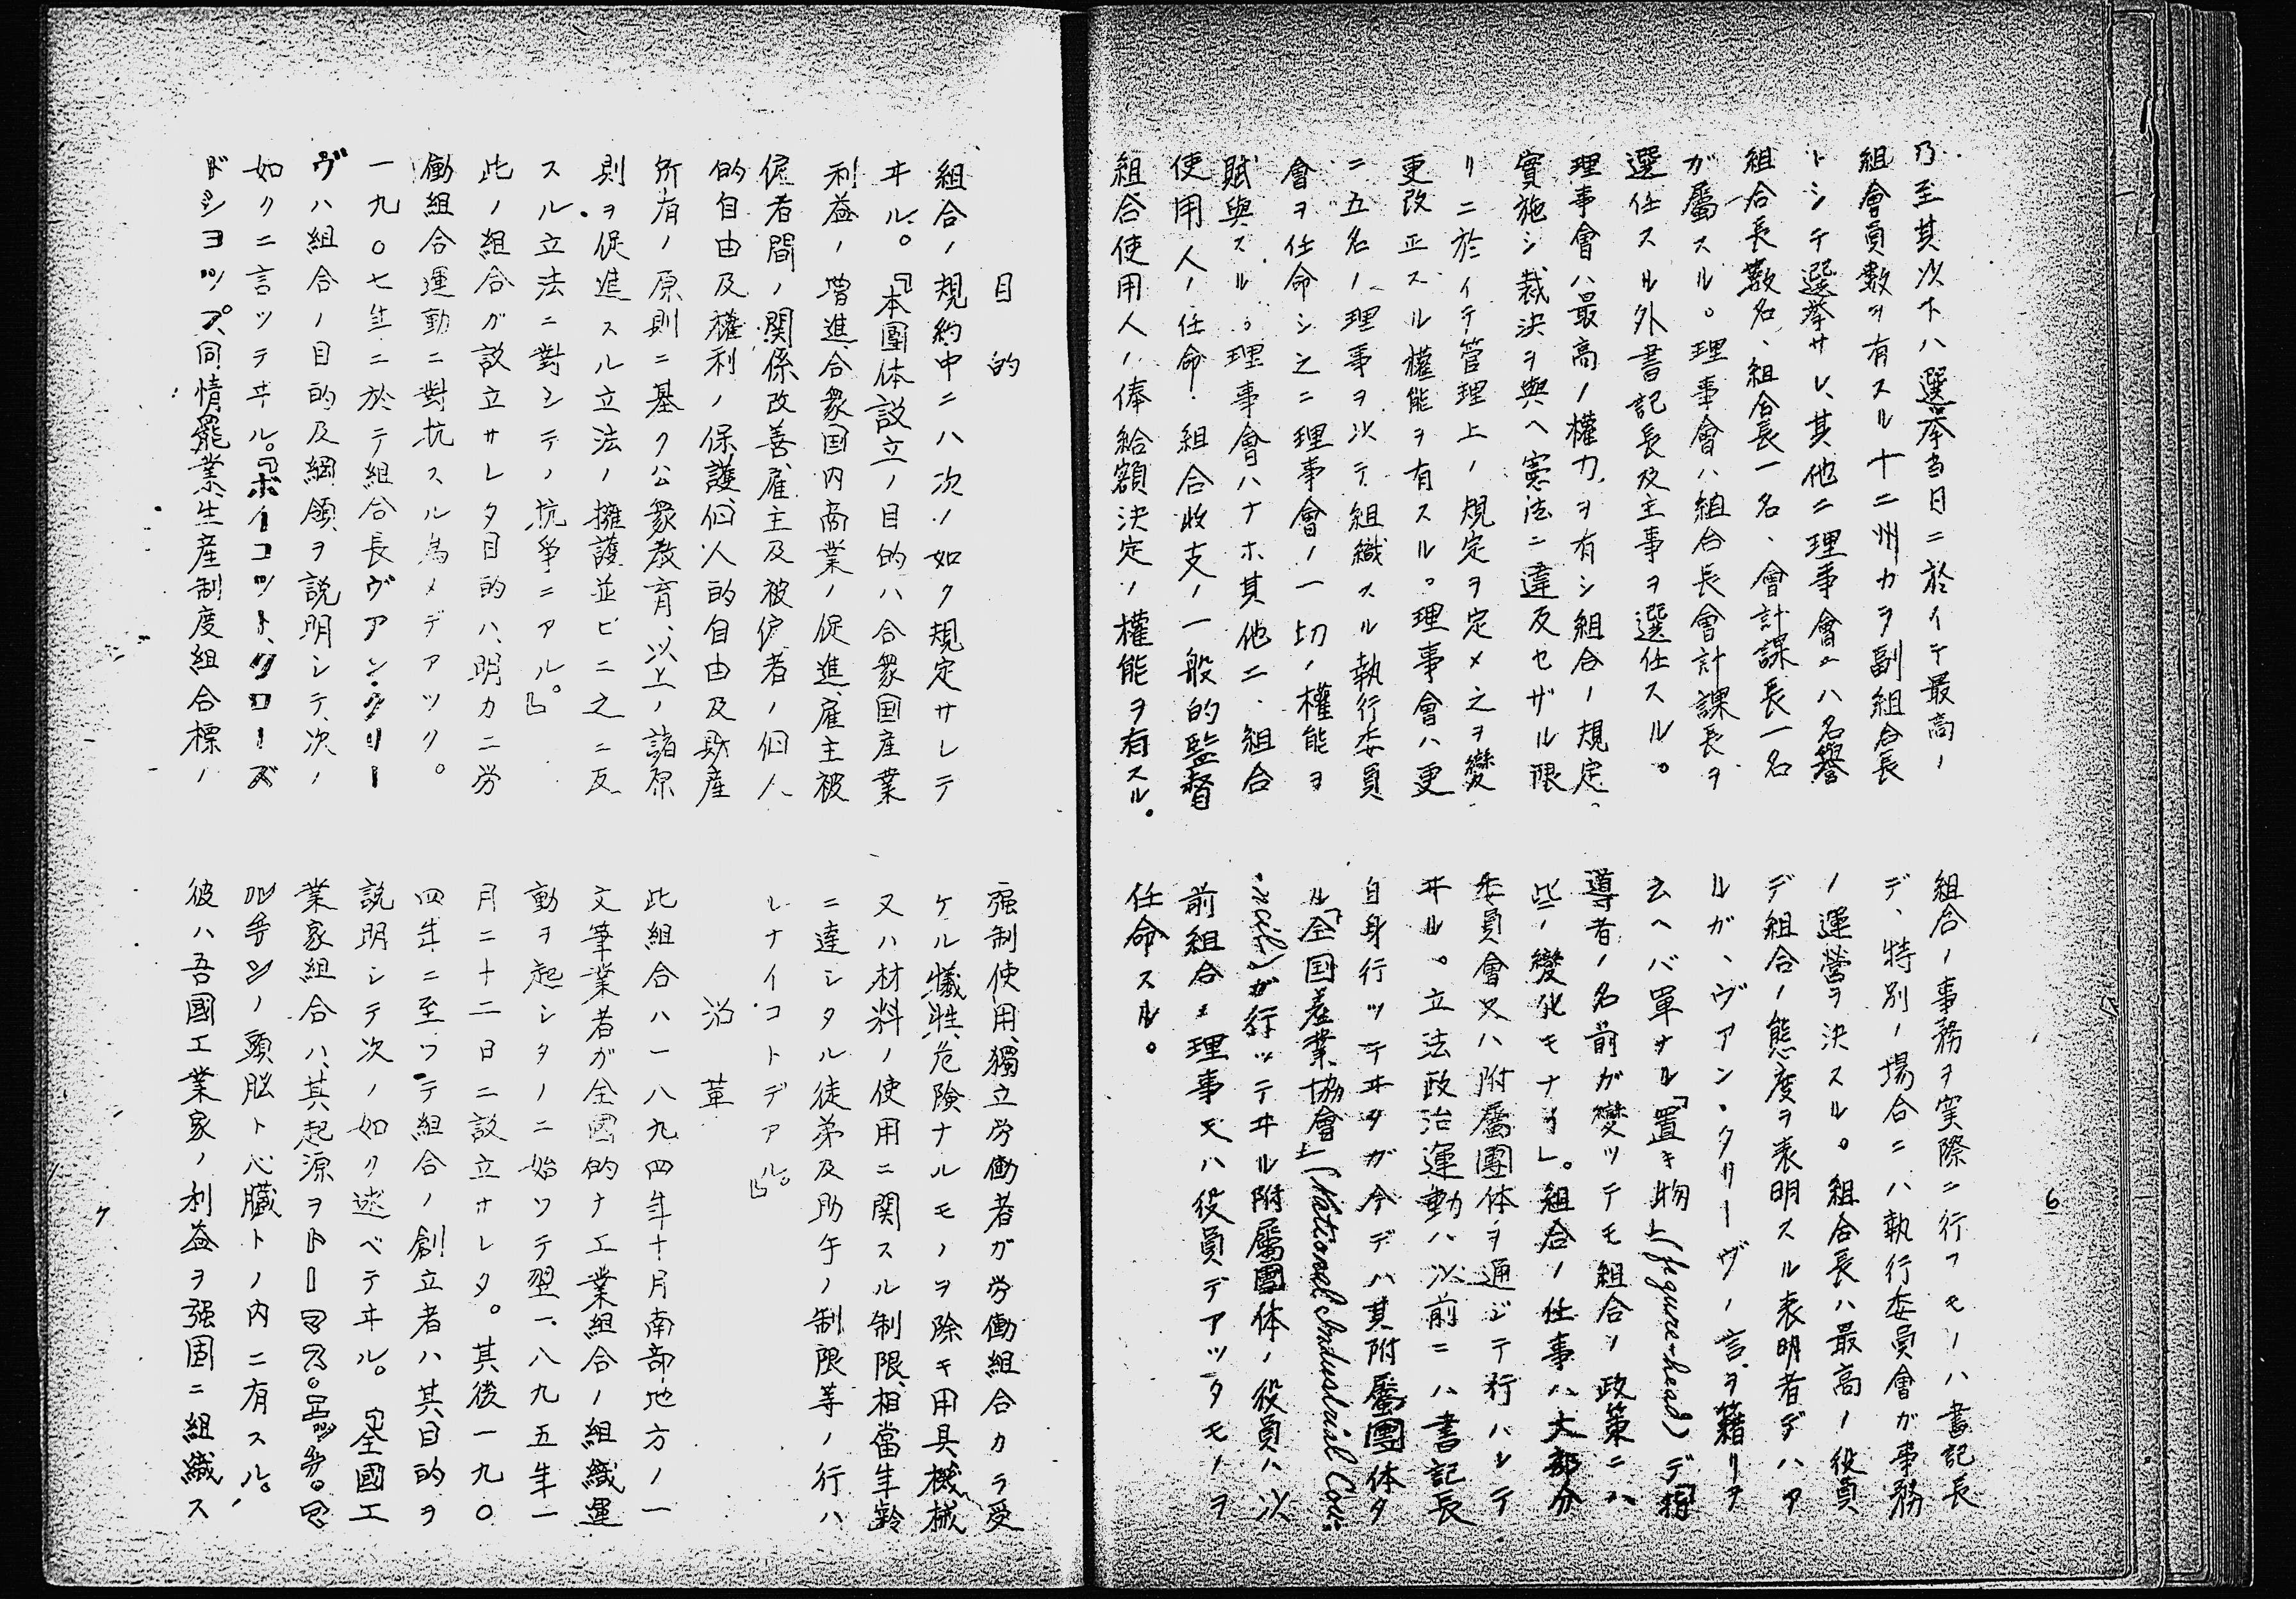 6
乃至其次下ハ選挙当日ニ於イテ最高ノ
組會員数ヲ有スル十二州カヲ副組合長
トシテ選挙サレ、其他ニ理事會ハ名譽
組合長数名、組合長一名、會計課長一名
ガ屬スル。理事會ハ組合長會計課長ヲ
選任スル外書記長及主事ヲ選任スル。
理事會ハ最高ノ權力ヲ有シ組合ノ規定
實施シ裁決ヲ與ヘ憲法ニ違反セザル限
リニ於イテ管理上ノ規定ヲ定メ之ヲ變
更改正スル權能ヲ有スル。理事會ハ更
ニ五名ノ理事ヲ以テ組織スル執行委員
會ヲ任命シ之ニ理事會ノ一切ノ權能ヲ
賦與スル。理事會ハナホ其他ニ、組合
使用人ノ任命、組合收支ノ一般的監督
組合使用人ノ俸給額決定ノ權能ヲ有スル。
組合ノ事務ヲ実際ニ行フモノハ書記長
デ、特別ノ場合ニハ執行委員會ガ事務
ノ運營ヲ決スル。組合長ハ最高ノ役員
デ組合ノ態度ヲ表明スル表明者デハア
ルガ、ヴアン・クリーヴノ言ヲ籍リテ
云ヘバ單ナル「置キ物」(figure-head)デ「指
導者ノ名前ガ變ツテモ組合ノ政策ニハ
些ノ變化モナイ」。組合ノ仕事ハ大部分
委員會又ハ附屬團体ヲ通ジテ行ハレテ
ヰル。立法政治運動ハ以前ニハ書記長
自身行ツテヰタガ今デハ其附屬團体タ
ル「全国産業協會」(National Industrial Cou-
ncil)ガ行ツテヰル附屬團体ノ役員ハ以
前組合ノ理事又ハ役員デアツタモノヲ
任命スル。
目的
組合ノ規約中ニハ次ノ如ク規定サレテ
ヰル。『本團体設立ノ目的ハ合衆国産業
利益ノ増進、合衆国内商業ノ促進、雇主被
傭者間ノ関係改善、雇主及被傭者ノ個人
的自由及權利ノ保護、個人的自由及財産
所有ノ原則ニ基ク公衆教育、以上ノ諸原
則ヲ促進スル立法ノ擁護並ビニ之ニ反
スル立法ニ對シテノ抗爭ニアル。』
此ノ組合ガ設立サレタ目的ハ、明カニ労
働組合運動ニ對抗スル為メデアツタ。
一九〇七年ニ於テ組合長ヴアン・クリー
ヴハ組合ノ目的及綱領ヲ説明シテ、次ノ
如クニ言ツテヰル。『ボイコツト、クローズ
ドシヨツプ、同情罷業、生産制度組合標ノ
强制使用、獨立労働者ガ労働組合カラ受
ケル犠牲、危険ナルモノヲ除キ用具機械
又ハ材料ノ使用ニ関スル制限、相當年齢
ニ達シタル徒弟及助手ノ制限等ノ行ハ
レナイコトデアル。』
沿革
此組合ハ一八九四年十月南部地方ノ一
文筆業者ガ全國的ナ工業組合ノ組織運
動ヲ起シタノニ始ツテ翌一八九五年一
月二十二日ニ設立サレタ。其後一九〇
四年ニ至ツテ組合ノ創立者ハ其目的ヲ
説明シテ次ノ如ク述ベテヰル。『全國工
業家組合ハ、其起源ヲトーマス。エツチ。マ
ルチンノ頭脳ト心臓トノ内ニ有スル。
彼ハ吾國工業家ノ利益ヲ强固ニ組織ス